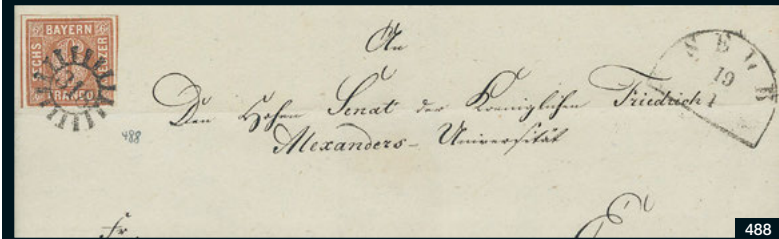 BAYERN
SECHS KREUZER
FRANCO
An
488
Den Hohen Senat der Koeniglichen Friedrich
Alexanders- Universität
19
1
Fr.
488